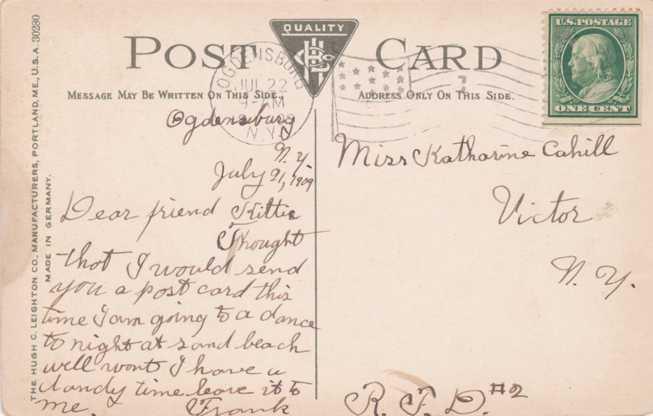 THE HUGH C. LEIGHTON CO., MANUFACTURERS, PORTLAND, ME., U.S.A. 30280
MADE IN GERMANY.
QUALITY
POST CARD
MESSAGE MAY BE WRITTEN ON THIS SIDE.
ADDRESS ONLY ON THIS SIDE.
U.S. POSTAGE
ONE CENT
JUL 22
AM
N.Y.
Ogdensburg
N.Y.
July 21, 1909
Dear friend Kittie
Thought
that I would send
you a post card this
time I am going to a dance
to night at sand beach
well wont I have a
dandy time leave it to
me. Frank
Miss Katharine Cahill
Victor
N.Y.
R.F.D #2